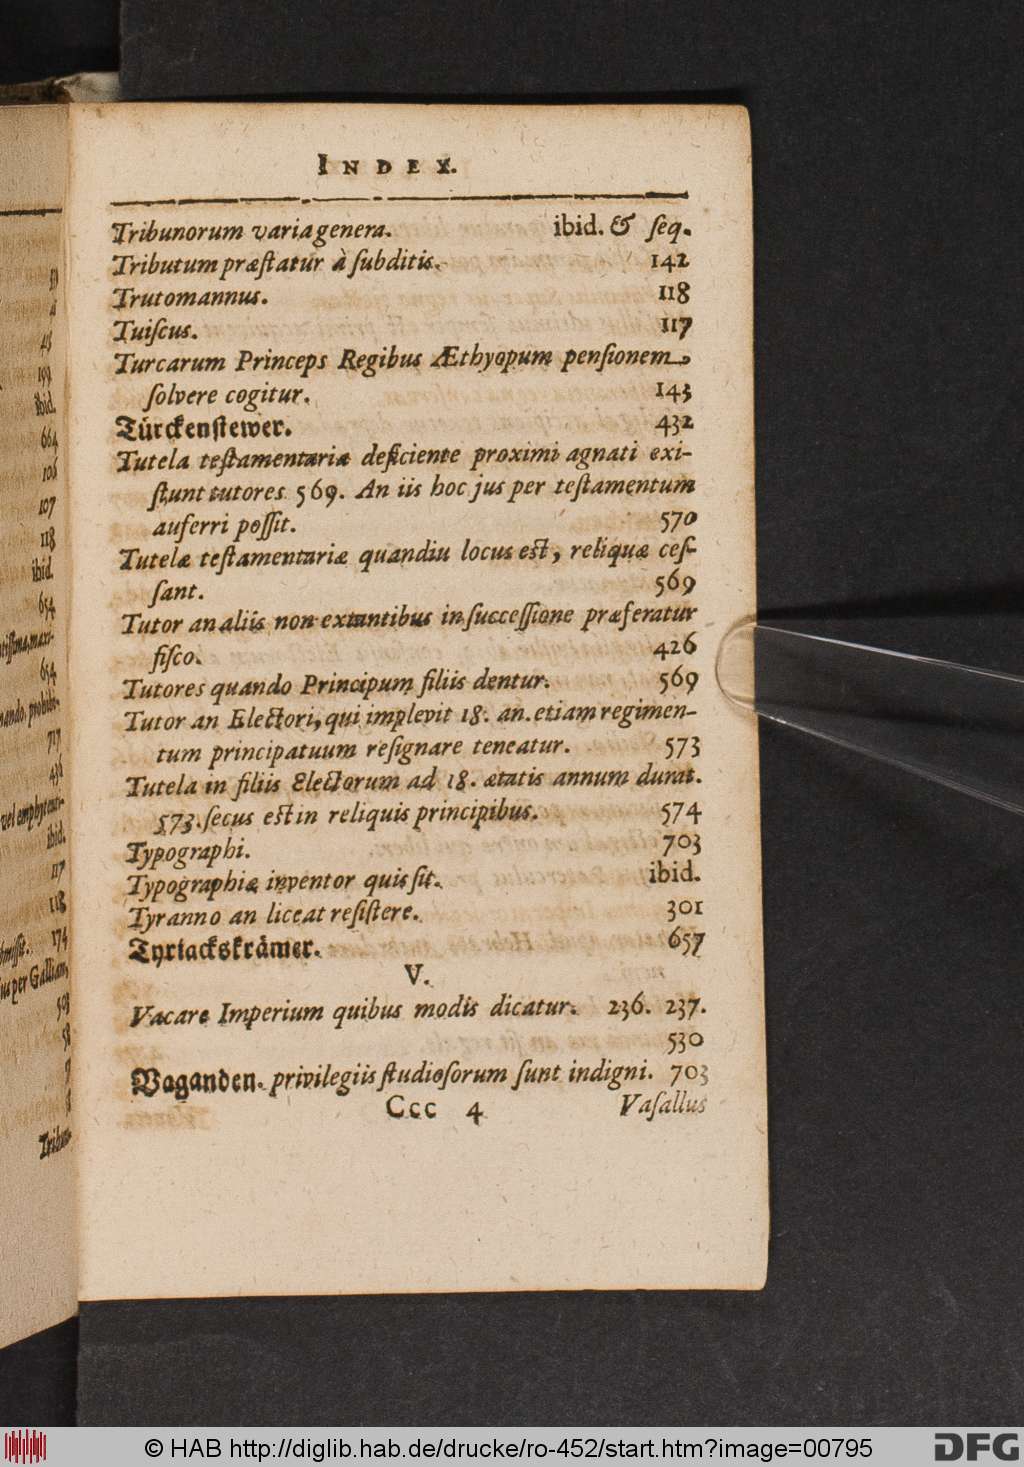 INDEX.
Tribunorum varia genera. ibid. & ſeq.
Tributum præſtatur à ſubditis. 142
Trutomannus. 118
Tuiſcus. 117
Turcarum Princeps Regibus Æthyopum penſionem
ſolvere cogitur. 143
Türckenſtewer. 432
Tutela teſtamentaria deficiente proximi agnati exi-
ſtunt tutores 569. An iis hoc jus per teſtamentum
auferri poſſit. 570
Tutelæ teſtamentariæ quandiu locus est, reliquæ ceſ-
ſant. 569
Tutor an aliis non extantibus in ſucceſſione præferatur
fiſco. 426
Tutores quando Principum filiis dentur. 569
Tutor an Electori, qui implevit 18. an. etiam regimen-
tum principatuum reſignare teneatur. 573
Tutela in filiis Electorum ad 18. ætatis annum durat.
573. ſecus est in reliquis principibus. 574
Typographi. 703
Typographiæ inventor quis ſit. ibid.
Tyranno an liceat reſiſtere. 301
Tyriackskrämer. 657
V.
Vacare Imperium quibus modis dicatur. 236. 237.
530
Vaganden. privilegiis ſtudioſorum ſunt indigni. 703
Ccc 4 Vaſallus
199
ibid.
664
106
107
118
ibid.
654
654
717
436
ibid.
117
118
174
503
58
© HAB http://diglib.hab.de/drucke/ro-452/start.htm?image=00795
DFG